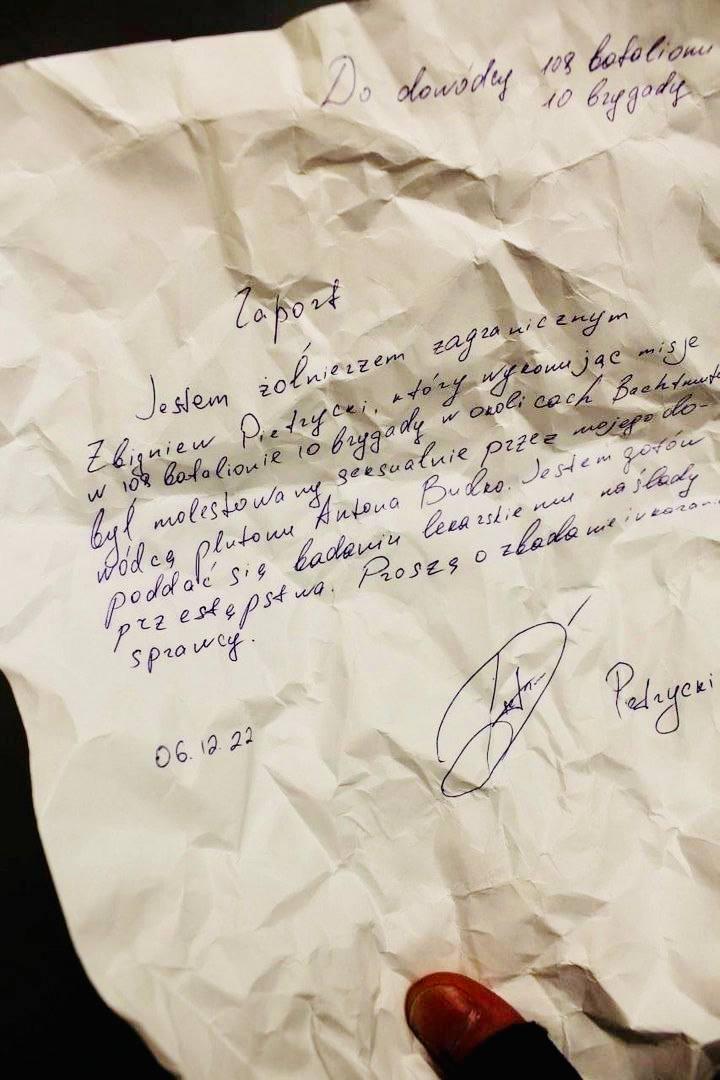 Do dowódcy 108 batalionu
10 brygady
Raport
Jestem żołnierzem zagranicznym
Zbigniew Pietrycki, który wykonując misje
w 108 batalionie 10 brygady w okolicach Bachmuta
był molestowany seksualnie przez mojego do-
wódcą plutonu Antona Budko. Jestem gotów
poddać się badaniu lekarskiemu na ślady
przestępstwa. Proszę o zbadanie i ukaranie
sprawcy.
06.12.22
Pietrycki